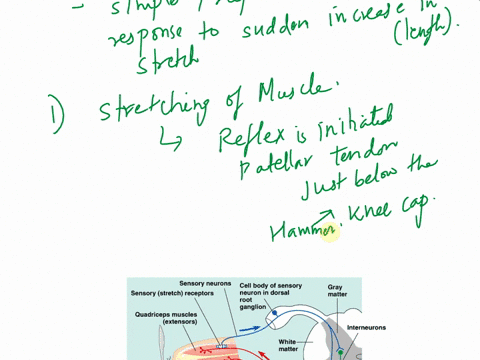 - simple
response to sudden increase in
stretch (length).
1) Stretching of Muscle.
↳ Reflex is initiated
patellar tendon
Just below the
Hammer. Knee cap.
Sensory neurons
Sensory (stretch) receptors
Quadriceps muscles
(extensors)
Cell body of sensory
neuron in dorsal
root
ganglion
Gray
matter
White
matter
Interneurons